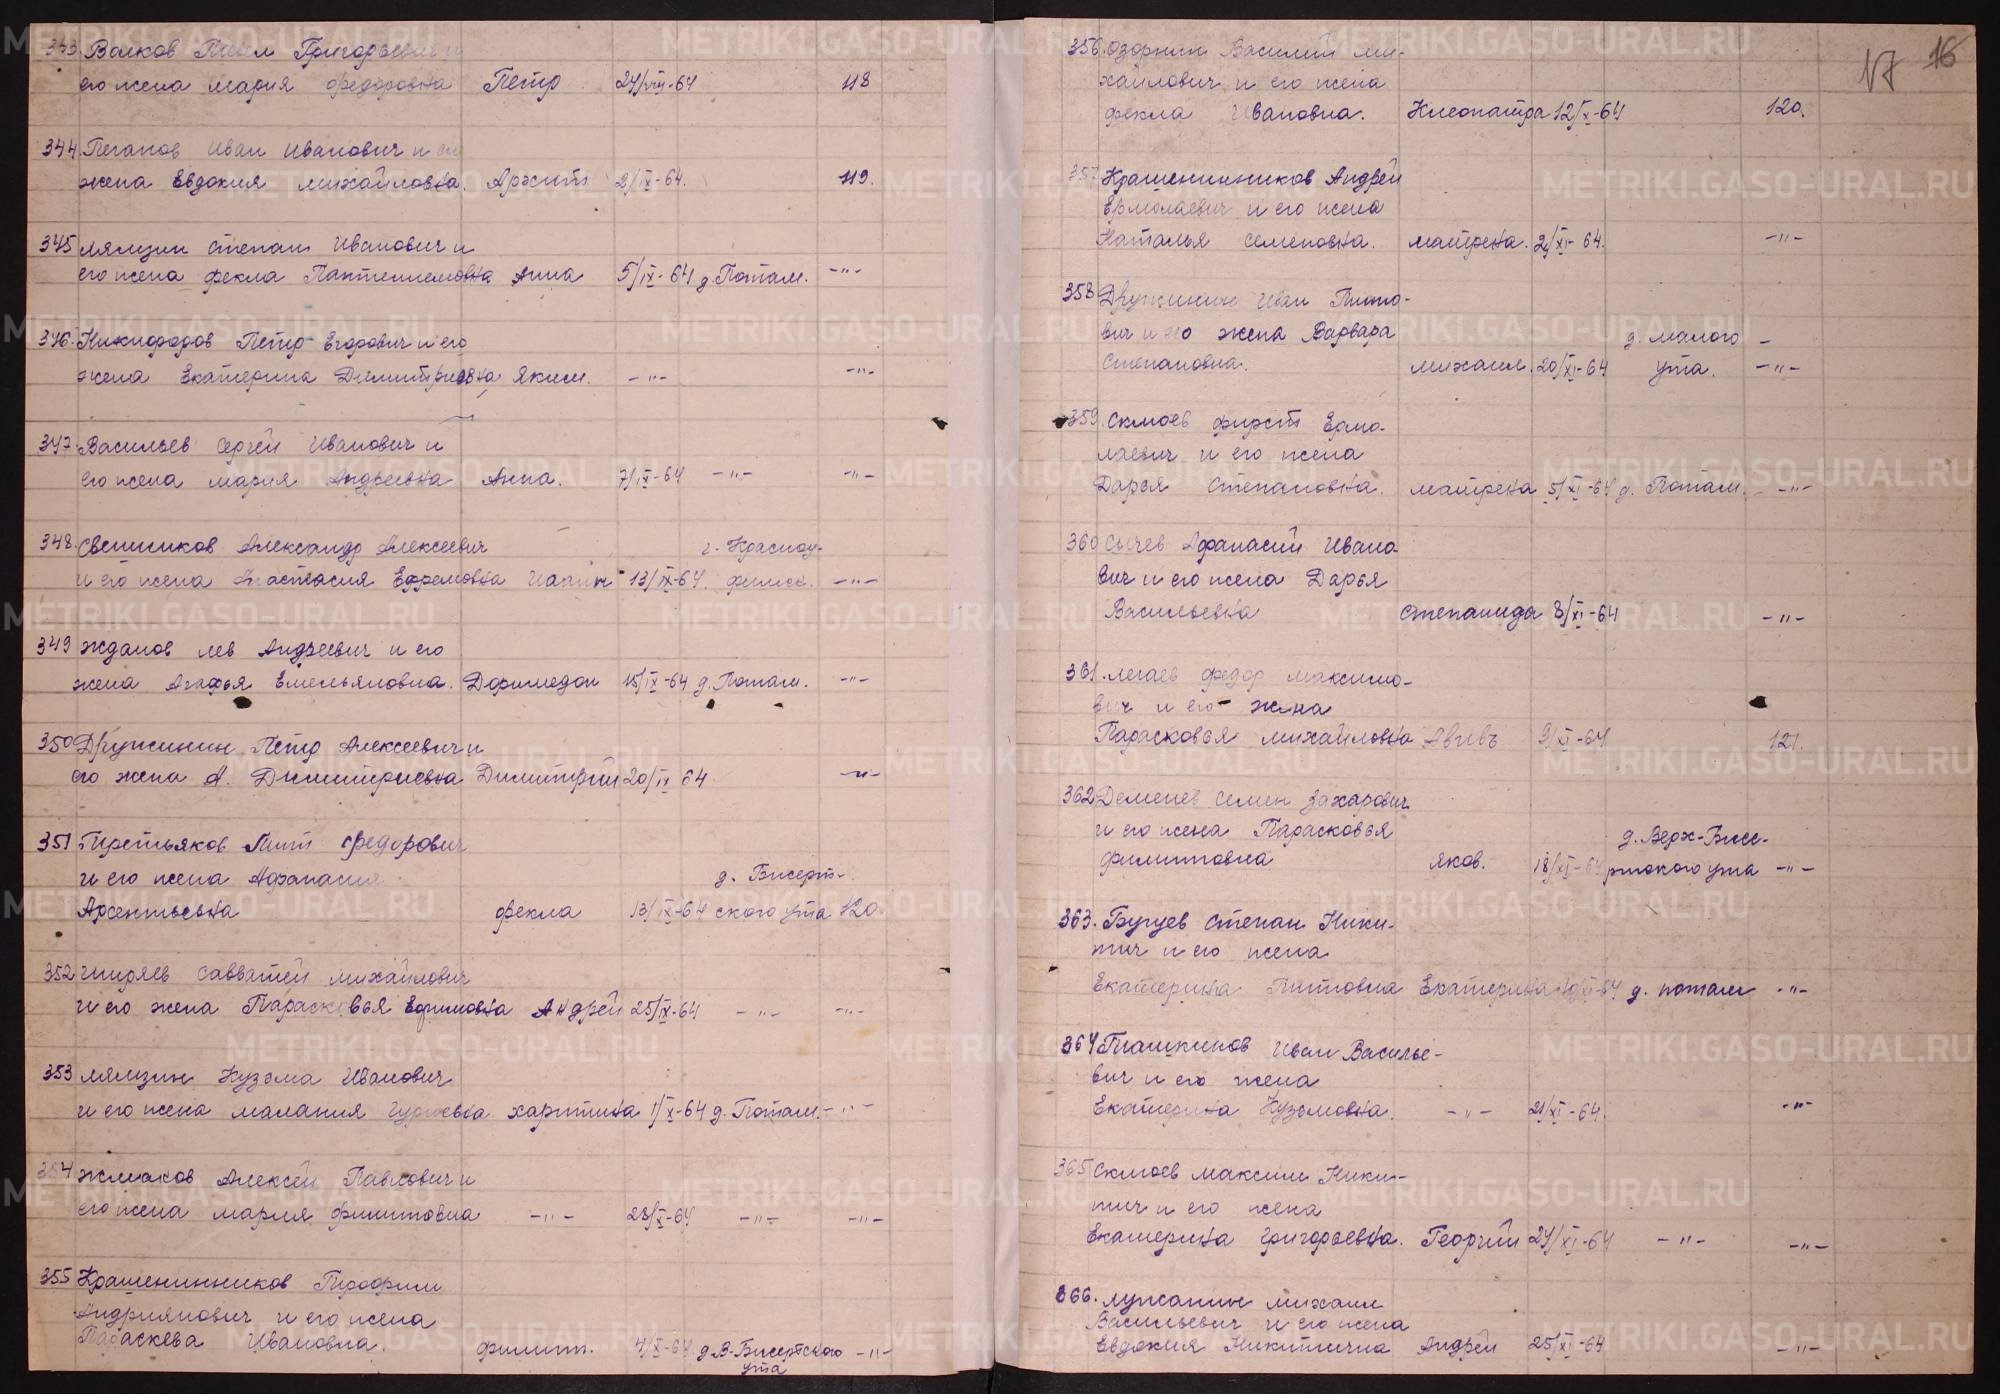 343. Волков Павел Григорьевич и
его жена Мария Федоровна Петр 24/VIII-64 118
344. Пеганов Иван Иванович и его
жена Евдокия Михайловна. 2/IX-64. 119.
345 Лямзин Степан Иванович и
его жена Фекла Пантелеемовна Анна 5/IX-64 д. Потам. -"-
346. Нижнородов Петр Егорович и его
жена Екатерина Димитриевна Яким. -"- -"-
347. Васильев Сергей Иванович и
его жена Мария Андреевна Анна. 7/IX-64 -"- -"-
348. Свешников Александр Алексеевич г. Красноу-
и его жена Анастасия Ефремовна 13/IX-64. фимск. -"-
349 Жданов Лев Андреевич и его
жена Агафья Емельяновна. Доримедон 15/IX-64 д. Потам. -"-
350 Дружинин Петр Алексеевич и
его жена А. Димитриевна Димитрий 20/IX 64 -"-
351 Третьяков Тит Федорович
и его жена Афанасия д. Бисерт-
Арсентьевна Фекла 13/IX-64 ского ута 120.
352 Ширяев Савватей Михайлович
и его жена Парасковья Ефимовна Андрей 25/IX-64 -"- -"-
353 Лямзин Кузьма Иванович
и его жена Малания Гурьевна Харитина 1/X-64 д. Потам. -"-
354 Жмаков Алексей Павлович и
его жена Мария Филиповна -"- 28/X-64 -"- -"-
355 Крашенинников Трофим
Андриянович и его жена
Параскева Ивановна. Филипп. 4/X-64 д. В-Бисертского -"-
ута
17 16
356. Озорнин Василий Ми-
хайлович и его жена
Фекла Ивановна. Клеопатра 12/X-64 120.
357 Крашенинников Андрей
Ермолаевич и его жена
Наталья Семеновна. Матрена. 2/XI-64. -"-
358 Дружинин Иван
вич и его жена Варвара д. Малого -
Степановна. Михаил. 20/XI-64 ута. -"-
359. Склюев Фирст Ермо-
лаевич и его жена
Дарья Степановна. Матрена 5/XI-64 д. Потам. -"-
360 Сычев Афанасий Ивано
вич и его жена Дарья
Васильевна Степанида 8/XI-64 -"-
361. Легаев Федор Максимо-
вич и его жена
Парасковья Михайловна Авивъ 9/XI-64 121.
362 Деменев Семен Захарович
и его жена Парасковья д. Верх-Бисе-
Филипповна Яков. 18/XI-64 ртского ута -"-
363. Бугуев Степан Ники-
тич и его жена
Екатерина Титовна Екатерина д. Потам -"-
364 Плашкинов Иван Василье-
вич и его жена
Екатерина Кузьмовна. -"- 21/XI-64. -"-
365 Склюев Максим Ники-
тич и его жена
Екатерина Григорьевна. Георгий 24/XI-64 -"- -"-
366. Лужанин Михаил
Васильевич и его жена
Евдокия Никитична Андрей 25/XI-64 -"-